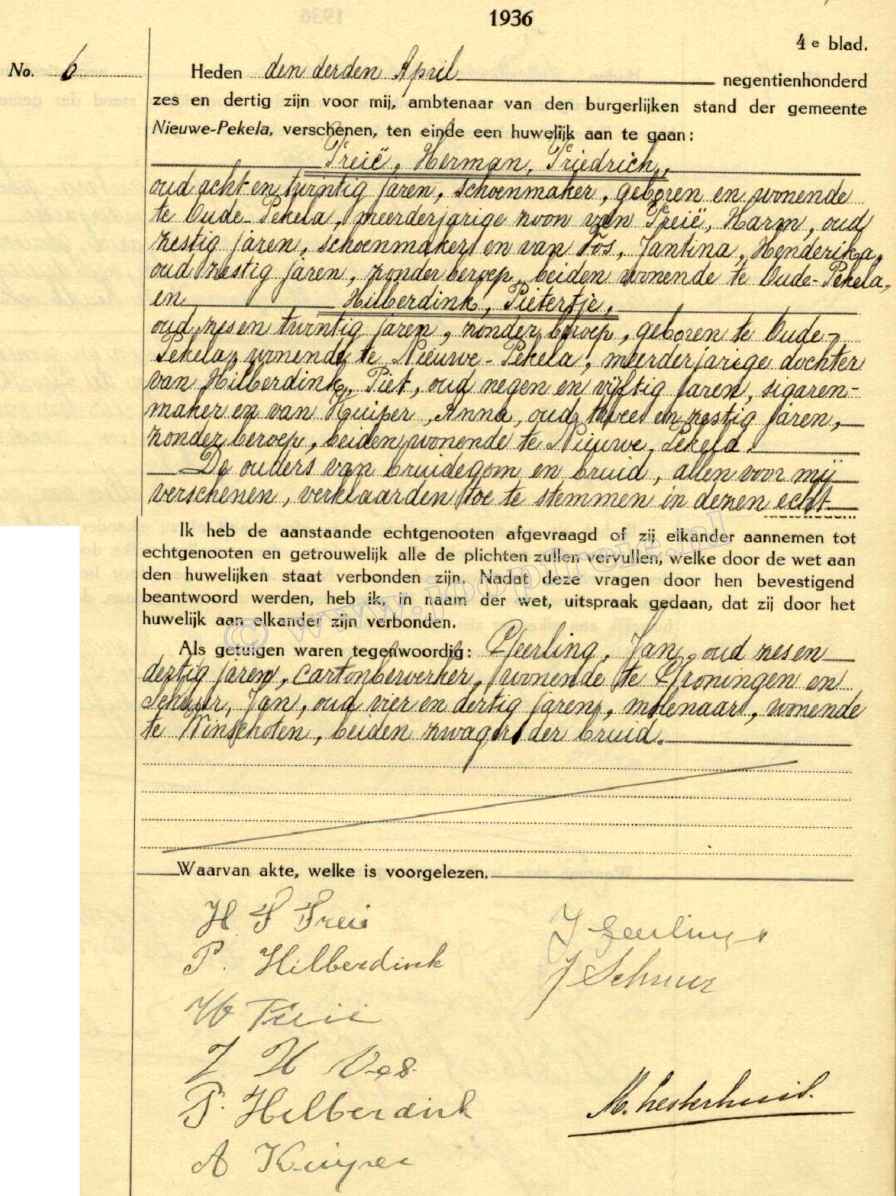 1936
4e blad.
No. 6
Heden den derden April negentienhonderd
zes en dertig zijn voor mij, ambtenaar van den burgerlijken stand der gemeente
Nieuwe-Pekela, verschenen, ten einde een huwelijk aan te gaan:
Freië, Herman, Friedrich,
oud acht en twintig jaren, schoenmaker, geboren en wonende
te Oude-Pekela, meerderjarige zoon van Freië, Harm, oud
zestig jaren, schoenmaker en van Vos, Jantina, Henderika,
oud zestig jaren, zonder beroep, beiden wonende te Oude-Pekela,
en Hilberdink, Pietertje,
oud zes en twintig jaren, zonder beroep, geboren te Oude-
Pekela, wonende te Nieuwe-Pekela, meerderjarige dochter
van Hilberdink, Piet, oud negen en vijftig jaren, sigaren-
maker en van Kuiper, Anna, oud twee en zestig jaren,
zonder beroep, beiden wonende te Nieuwe Pekela.
De ouders van bruidegom en bruid, allen voor mij
verschenen, verklaarden toe te stemmen in dezen echt
Ik heb de aanstaande echtgenooten afgevraagd of zij elkander aannemen tot
echtgenooten en getrouwelijk alle de plichten zullen vervullen, welke door de wet aan
den huwelijken staat verbonden zijn. Nadat deze vragen door hen bevestigend
beantwoord werden, heb ik, in naam der wet, uitspraak gedaan, dat zij door het
huwelijk aan elkander zijn verbonden.
Als getuigen waren tegenwoordig: Geerling, Jan, oud zes en
dertig jaren, cartonbewerker, wonende te Groningen en
Schuur, Jan, oud vier en dertig jaren, molenaar, wonende
te Winschoten, beiden zwagers der bruid.
Waarvan akte, welke is voorgelezen.
H F Freie
J Geerling
P. Hilberdink
J Schuur
H Freie
J H Vos.
P. Hilberdink
A Kuiper